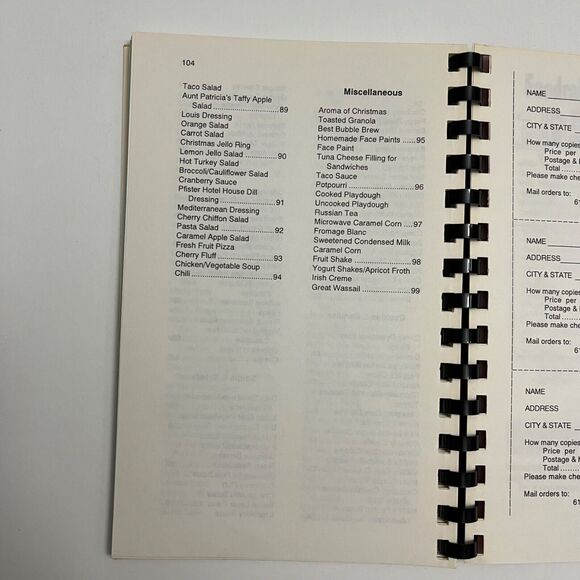 104
Taco Salad
Aunt Patricia's Taffy Apple
Salad ..............................89
Louis Dressing
Orange Salad
Carrot Salad
Christmas Jello Ring
Lemon Jello Salad ................90
Hot Turkey Salad
Broccoli/Cauliflower Salad
Cranberry Sauce
Pfister Hotel House Dill
Dressing .........................91
Mediterranean Dressing
Cherry Chiffon Salad
Pasta Salad ........................92
Caramel Apple Salad
Fresh Fruit Pizza
Cherry Fluff .........................93
Chicken/Vegetable Soup
Chili ....................................94
Miscellaneous
Aroma of Christmas
Toasted Granola
Best Bubble Brew
Homemade Face Paints .....95
Face Paint
Tuna Cheese Filling for
Sandwiches
Taco Sauce
Potpourri ............................96
Cooked Playdough
Uncooked Playdough
Russian Tea
Microwave Caramel Corn ....97
Fromage Blanc
Sweetened Condensed Milk
Caramel Corn
Fruit Shake ........................98
Yogurt Shakes/Apricot Froth
Irish Creme
Great Wassail .....................99
NAME
ADDRESS
CITY & STATE
How many copies
Price per
Postage &
Total
Please make che
Mail orders to:
6
NAME
ADDRESS
CITY & STATE
How many copies
Price per
Postage &
Total
Please make che
Mail orders to:
61
NAME
ADDRESS
CITY & STATE
How many copies
Price per
Postage &
Total
Please make che
Mail orders to:
61